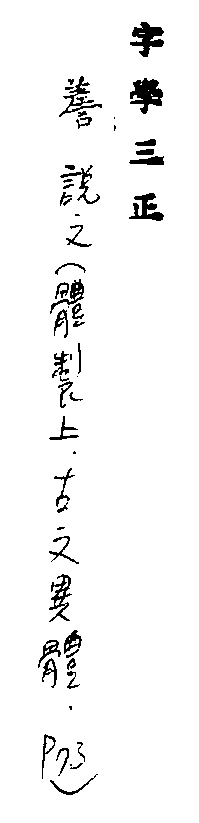 字學三正
譱 說文(體製上．古文異體．P73)